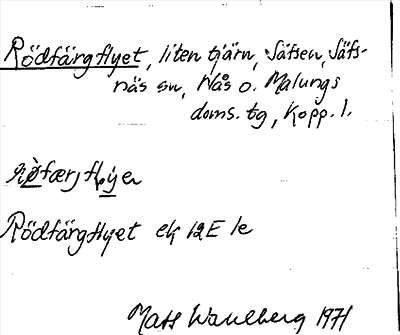 Rödfärgflyet, liten tjärn, Säfsen, Säfs-
näs sn, Nås o. Malungs
doms. tg, Kopp. l.
Rödfärgflyet ek 12E 1e
Mats Wahlberg 1971